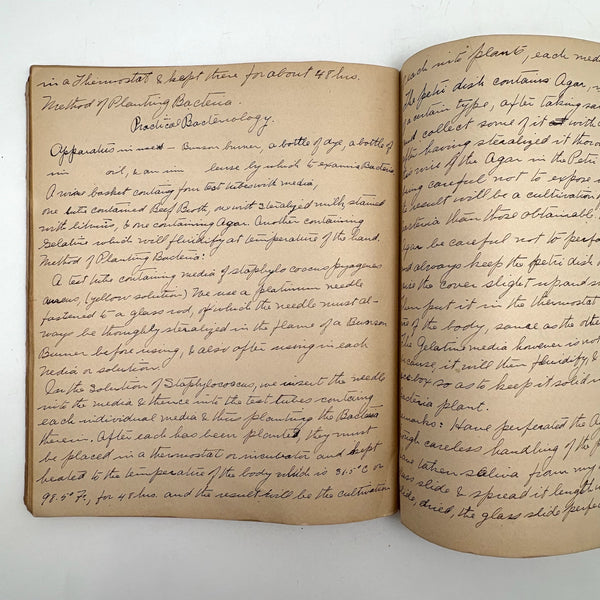 in a Thermostat & kept there for about 48 hrs.
Method of Planting Bacteria.
Practical Bacteriology.
Apparatus in use – Bunson burner, a bottle of dye, a bottle of
im oil, & an im lense by which to examine Bacteria.
A wire basket containg four test tubes with media,
one tube contained Beef Broth, one with steralized milk, stained
with litmus, & one containing Agar. Another containing
Gelatine which will fluidify at temperature of the hand.
Method of Planting Bacteria:
A test tube containing media of staphylo coscus pyagenes
aureus, (yellow solution) We use a platinum needle
fastened to a glass rod, of which the needle must al-
ways be thoughly steralized in the flame of a Bunson
Burner before using, & also after using in each
media or solution.
In the Solution of Staphylococcus, we insert the needle
into the media & thence into the test-tubes containg
each individual media & thus planting the Bacteria
therein. After each has been planted, they must
be placed in a thermostat or incubator and kept
heated to the temperature of the body which is 37.5° C or
98.5° F., for 48 hrs. and the result will be the cultivation
each into plants, each medi
The petri dish contains Agar,
a certain type, after taking
and collect some of it with
after having steralized it
some of the Agar in the Petri
being careful not to expose
result will be a cultivation
bacteria than those obtainable
Agar be careful not to perfo
and always keep the petri dish
the cover slight up and
then put it in the thermostat
of the body, same as the othe
The Gelatine media however is not
because it will then fluidify &
ice box so as to keep it solid
bacteria plant.
Remarks: Have perforated the A
through careless handling of the
have taken saliva from my
glass slide & spread it length
slide, dried, the glass slide perfec